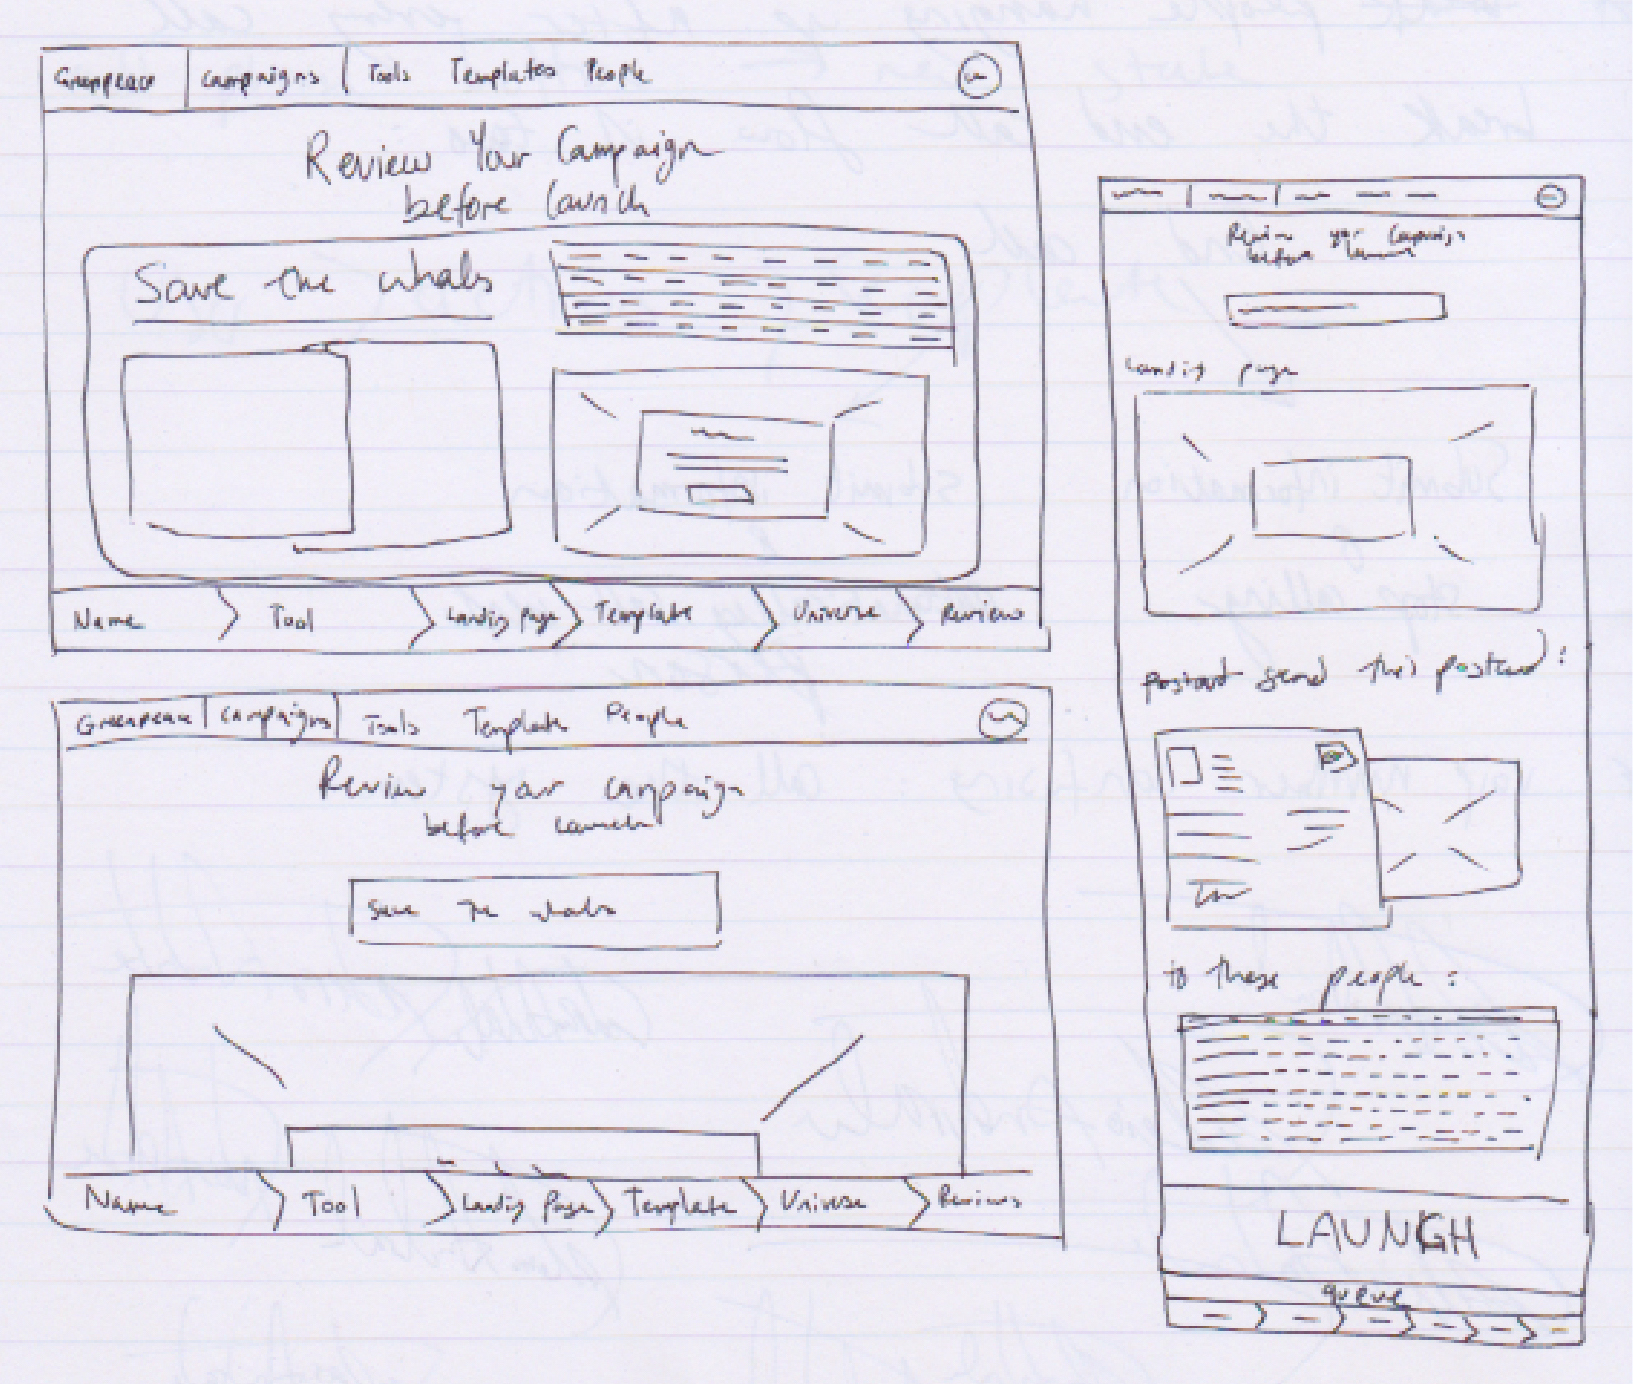 Greenpeace Campaigns Tools Templates People
Review Your Campaign
before launch
Save the whales
Name Tool Landing Page Template Universe Review
Greenpeace Campaigns Tools Template People
Review your campaign
before launch
Save the whales
Name Tool Landing Page Template Universe Review
Review your campaign
before launch
Landing page
send this postcard:
to these people:
LAUNCH
queue